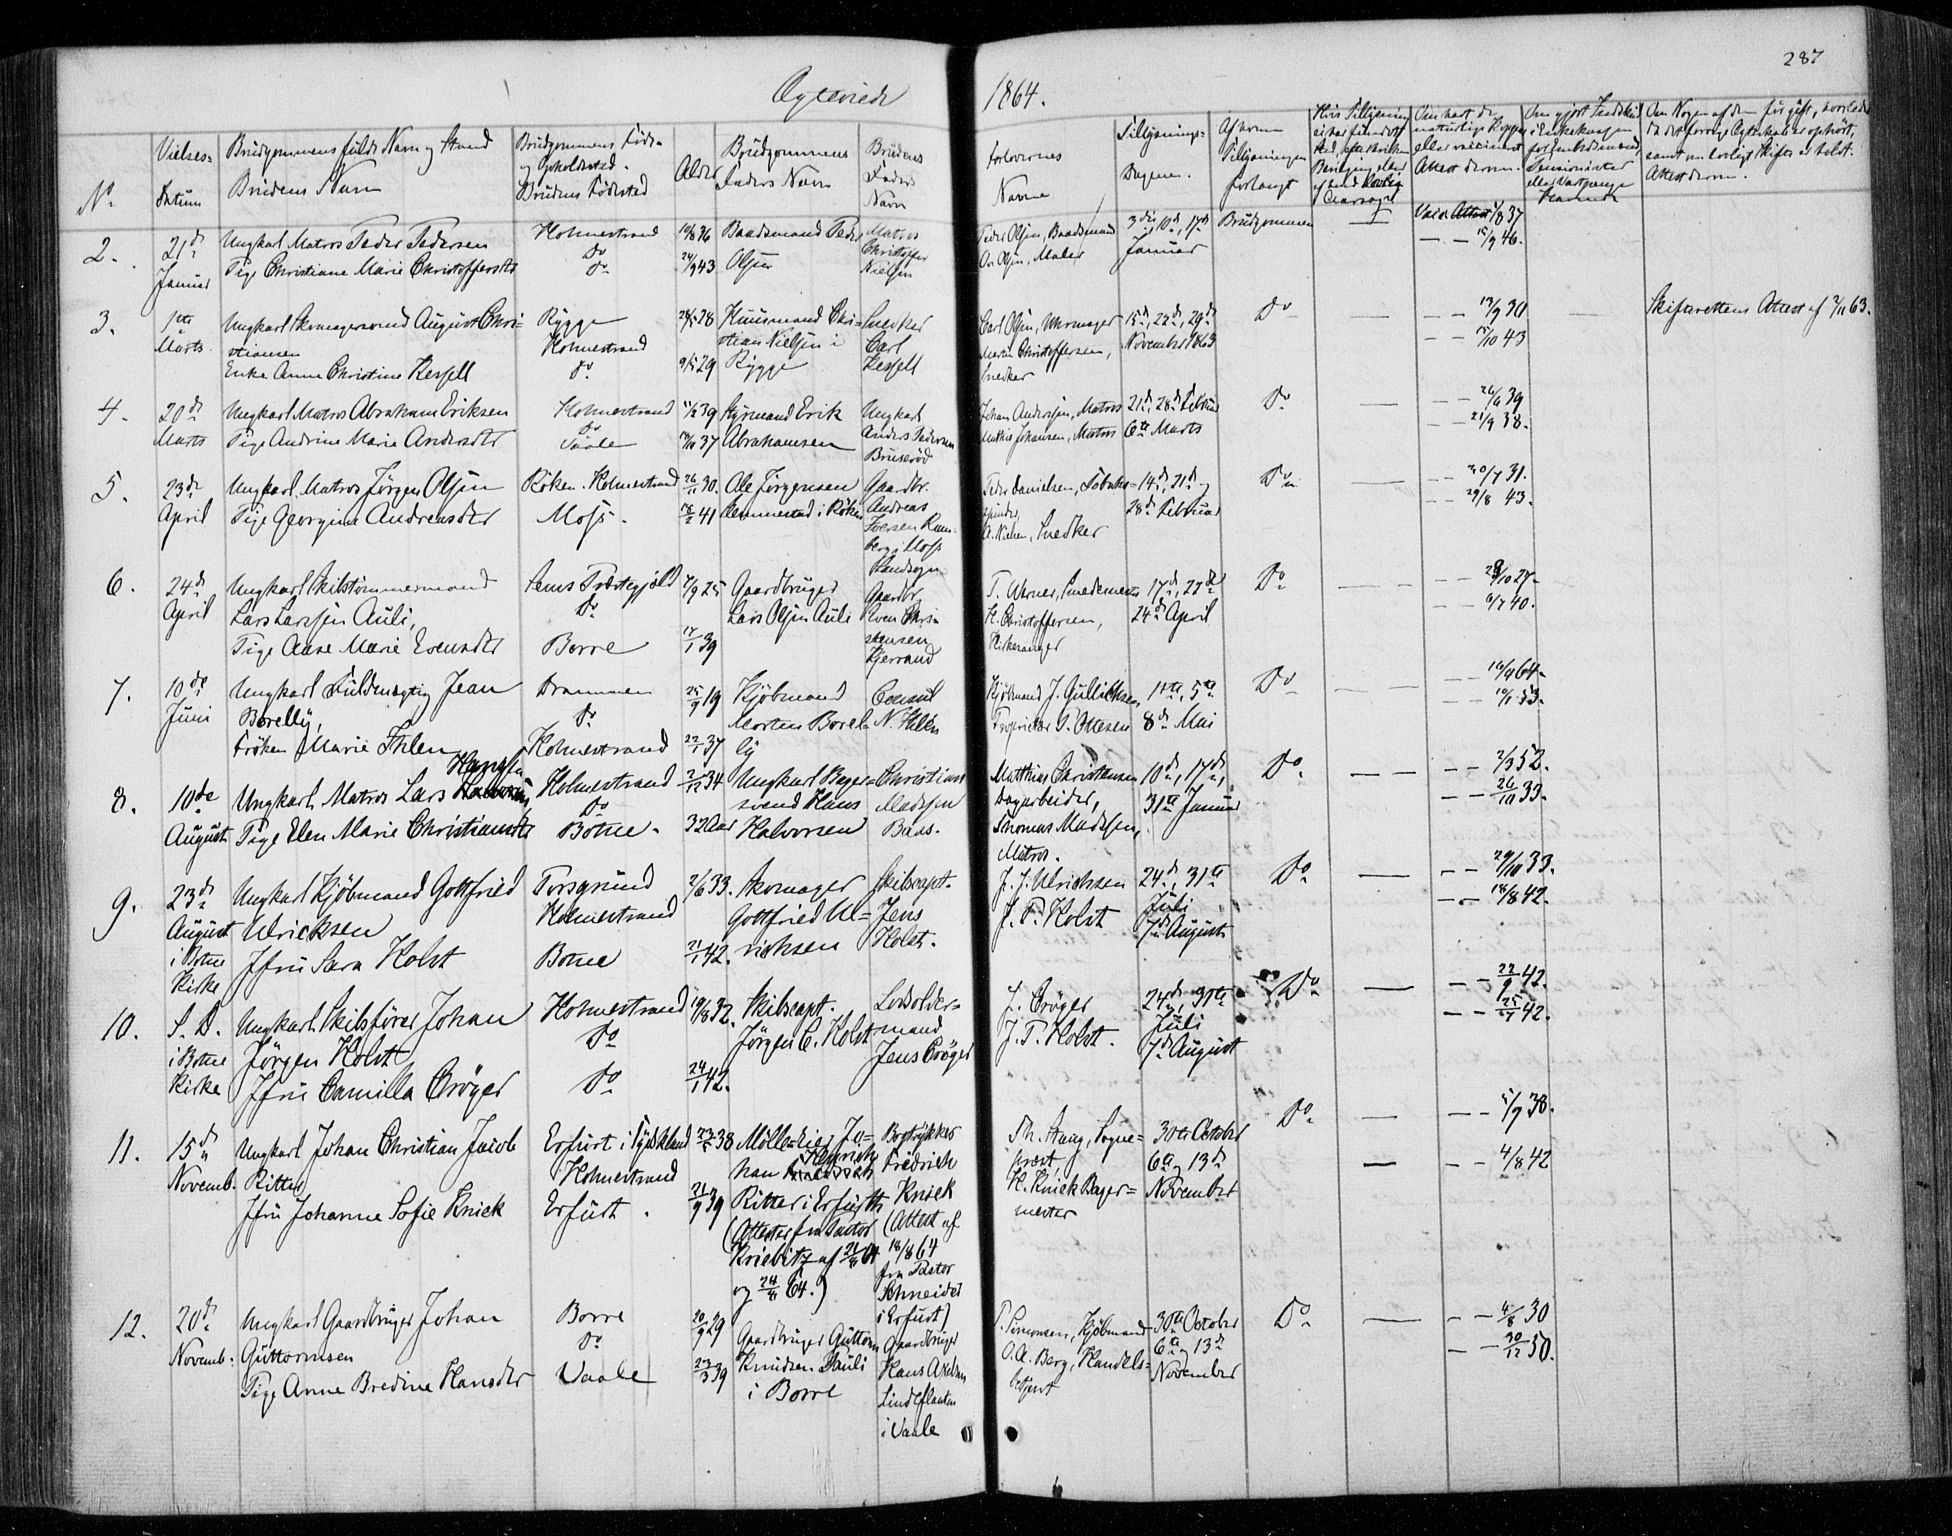 287
Ægteviede
1864.
No
Vielses-
Datum
Brudgommens fulde Navn og Stand
Brudens Navn
Brudgommens Føde-
og Opholdssted.
Brudens Fødested
Alder
Brudgommens
Faders Navn
Brudens
Faders
Navn
Forlovernes
Navne
Tillysnings-
Dagene.
Af hvem
Tillysningen
forlangt
2.
21de
Januar
Ungkarl Matros Peder Pedersen
Pige Christiane Marie Christoffersdtr
Holmestrand
Do
Do
19/8 36
24/9 43
Baadsmand Peder
Olsen
Matros
Christoffer
Nielsen
Peder Olsen, Baadsmand
Ole Olsen, Maler
3die, 10de, 17de
Januar
Brudgommen
—
Vacc. Attest 1/8 37
— — 15/9 46.
3.
1ste
Marts
Ungkarl Skomagersvend August Chri-
stiansen
Enke Anne Christine Kessell
Rygge
Holmestrand
Do
28/5 28
9/5 29
Huusmand Chri-
stian Nielsen i
Rygge
Snedker
Carl
Kessell
Carl Olsen, Uhrmager
Martin Christoffersen,
Snedker
15de, 22de, 29de
November 1863
Do
— —
— — 13/9 30
— — 15/10 43
Skifterettens Attest af 2/11 63.
4.
20de
Marts
Ungkarl Matros Abraham Eriksen
Pige Andrine Marie Andersdtr
Holmestrand
Do
Vaale
11/2 39
19/10 37
Styrmand Erik
Abrahamsen
Ungkarl
Anders Pedersen
Bruserød
Johan Andersen, Matros
Mathis Johansen, Matros
21de, 28de Februar
6te Marts
Do
— —
— — 26/6 39
— — 21/9 38.
5.
23de
April
Ungkarl Matros Jørgen Olsen
Pige Georgine Andreasdtr
Røken. Holmestrand
Moss.
26/11 30.
18/2 41
Ole Jørgensen
Hemmestad i Røken
Gaardbr.
Andreas
Iversen Rum-
berg i Moss
Landsogn
Peder Danielsen, Tobaks-
spinder,
A. Nielsen, Snedker
14de, 21de og
28de Februar
Do
— —
— — 30/7 31.
— — 29/8 43.
6.
24de
April
Ungkarl Skibstømmermand
Lars Larssen Auli,
Pige Aase Marie Evensdtr
Sems Præstegjæld
Do
Borre
7/9 25
17/1 39
Gaardbruger
Lars Olsen Auli
Gaardbr.
Even Chri-
stensen
Kjerrand
T. Werner, Smedemester
H. Christoffersen,
Kirkesanger
17de, 22de
24de April
Do
— —
— — 28/10 27.
— — 6/7 40.
7.
10de
Juni
Ungkarl Fuldmægtig Jean
Borelly,
Frøken Marie Ihlen
Drammen
Do
Holmestrand
25/9 19
22/1 37
Kjøbmand
Morten Borel-
ly
Consul
N. Ihlen
Kjøbmand J. Gullichsen
Proprietær P. Ottesen
1ste, 5te
8de Mai
Do
— —
— — 16/4 64.
— — 10/1 53.
8.
10de
August
Ungkarl Matros Lars Hanssen
Pige Elen Marie Christiansdtr
Holmestrand
Do
Botne.
2/12 34
32 Aar
Ungkarl Bager-
svend Hans
Halvorsen
Christian
Madssen
Baas.
Matthias Christensen
Dagarbeider,
Thomas Madssen,
Matros.
10de, 17de,
31te Januar
Do
— —
— — 2/3 52.
— — 26/10 33.
9.
23de
August
i Botne
Kirke
Ungkarl Kjøbmand Gottfried
Ulricksen
Jfru Sara Holst
Porsgrund
Holmestrand
Botne
2/6 33.
21/1 42.
Skomager
Gottfried Ul-
richsen
Skibscapt.
Jens
Holst.
J. J. Ulrichsen
J. P. Holst
24de, 31te
Juli
7de August
Do
—
— — 29/10 33.
— — 18/8 42.
10.
S. D.
i Botne
Kirke
Ungkarl Skibsfører Johan
Jørgen Holst
Jfru Camilla Crøger
Holmestrand
Do
Do
19/8 32.
24/1 42.
Skibscapt.
Jørgen C. Holst
Lodsolder-
mand
Jens Crøger
J. Crøger
J. P. Holst.
24de, 31te
Juli
7de August
Do
—
— — 22/9 42.
— — 25/4 42.
11.
15de
Novemb.
Ungkarl Johan Christian Jacob
Ritter
Jfru Johanne Sofie Knick
Erfurt i Tydskland
Holmestrand
Erfurt.
23/5 38
21/9 39
Mølle-Eier Jo-
han Heinrich
Ritter i Erfurth
(Attester fra Pastor
Kriebitz af 21/8 64
og 24/8 64.)
Bogtrykker
Friedrich
Knick
(Attest af
18/8 64
fra Pastor
Schneider
i Erfurt)
Th. Haug, Sogne-
præst,
H. Knick Bager-
mester
30te October
6te og 13de
November
Do
—
— — 5/9 38.
— — 4/8 42
12.
20de
Novemb:
Ungkarl Gaardbruger Johan
Guttormsen
Pige Anne Bredine Hansdtr
Borre
Do
Vaale
20/9 29
23/3 39
Gaardbruger Guttorm
Knudsen Pauli
i Borre
Gaardbruger
Hans Axelsen
Lindeflaaten
i Vaale
P. Simonsen, Kjøbmand
O. A. Berg, Handels-
betjent
30te October
6te og 13de
November
Do
— —
— — 4/8 30
— — 30/12 50.